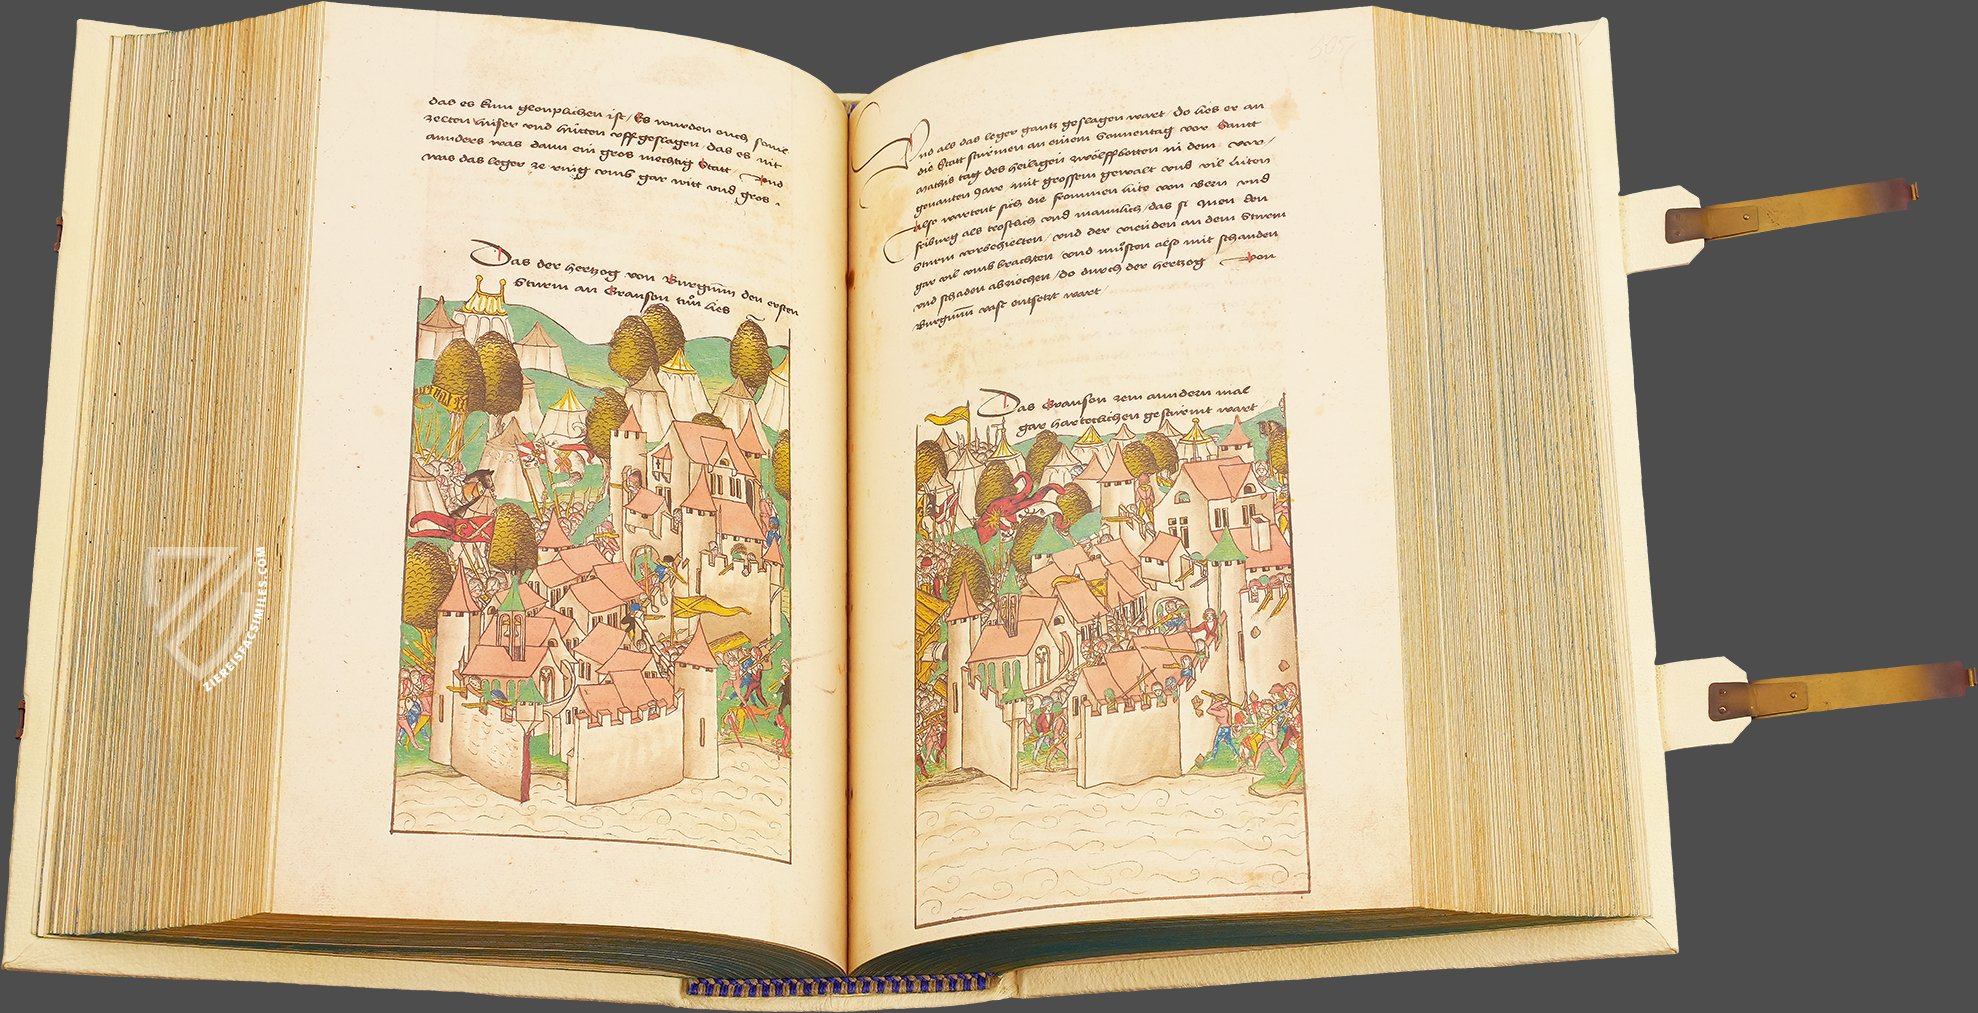 das es kum glouplichen ist / Es wurden ouch sovil
zelten hüser und hütten uff geslagen das es nit
annders was dann ein gros mechtig Statt Und
was das leger ze ring umb gar witt und gros .
Das der hertzog von Burgunn den ersten
Sturm an Granson tůn lies
Und als das leger gantz geslagen wart do lies er an
die Statt stürmen an einem Sonnentag vor Sannt
Mathis tag des heiligen zwölffbotten in dem vor /
genanten Jare mit grossem gewalt und vil lüten
also wartent sich die frommen lüte von Bern und
friburg als trostlich und manlich / das si Inen den
Sturm vorbehielten / und der vienden an dem Sturm
gar vil umb brachten und můsten also mit schanden
und schaden abziechen / do durch der hertzog von
Burgunn vast entsetzt wart /
Das Granson zem anndern mal
gar hartteclichen gesturmt wart
ZIEREISFACSIMILES.COM